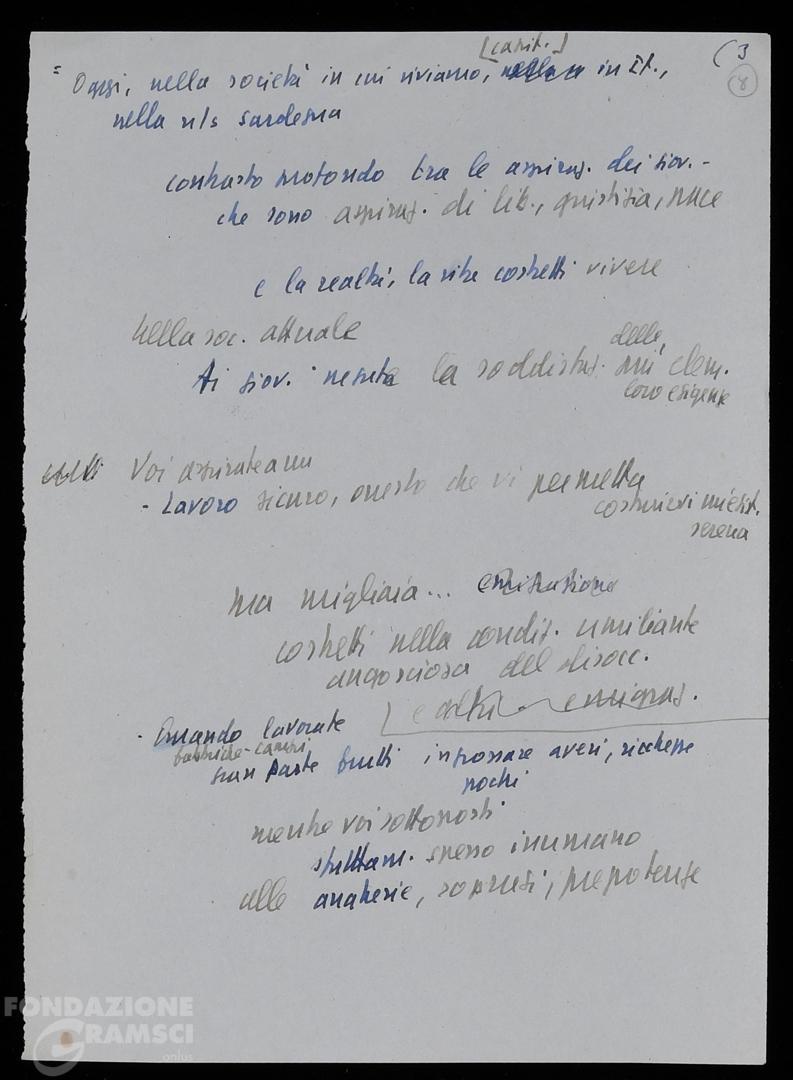 [capit.]
(3
8
= Oggi, nella società in cui viviamo, in It.,
nella n/s Sardegna
contrasto profondo tra le aspiraz. dei giov. -
che sono aspiraz. di lib., giustizia, pace
e la realtà, la vita costretti vivere
Nella soc. attuale
Ai giov. negata la soddisfaz. delle più elem.
loro esigenze
Voi aspirate a un
- Lavoro sicuro, onesto che vi permetta
costruirvi un'esist.
serena
ma migliaia... emigrazione
costretti nella condiz. umiliante
angosciosa del disocc.
e altri emigraz.
- Quando lavorate
fabbriche - campi
gran parte frutti ingrossare averi, ricchezze
pochi
mentre voi sottoposti
sfruttam. spesso inumano
alle angherie, soprusi, prepotenze
FONDAZIONE
GRAMSCI
onlus